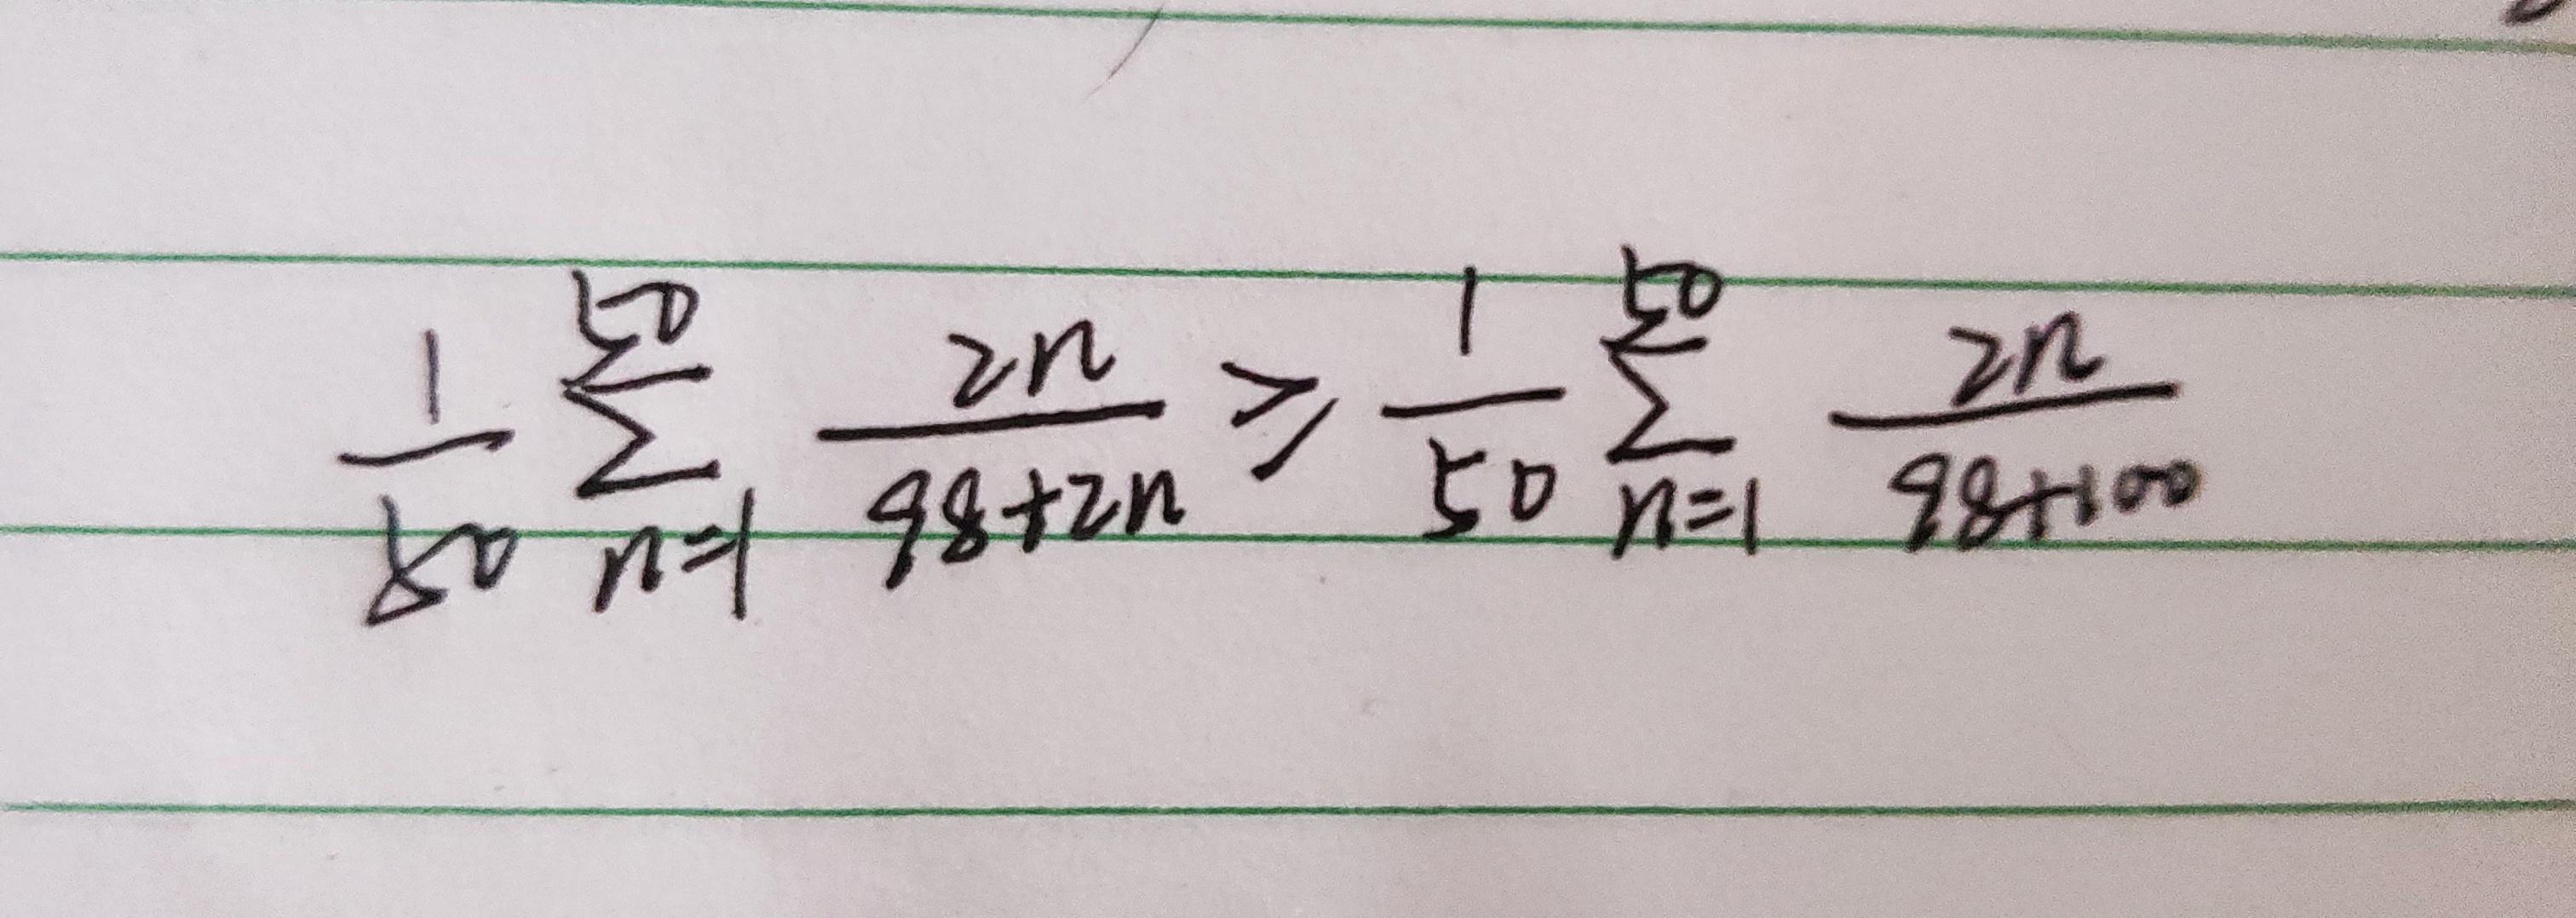 \frac{1}{50} \sum_{n=1}^{50} \frac{2n}{98+2n} \geq \frac{1}{50} \sum_{n=1}^{50} \frac{2n}{98+100}